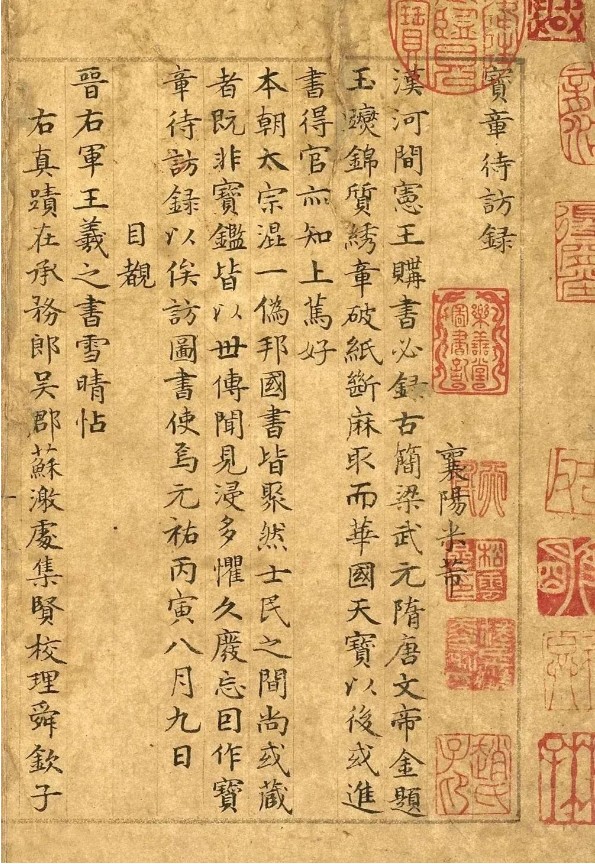 寶章待訪録
襄陽米芾
漢河間憲王購書必録古簡梁武元隋唐文帝金題
玉躞錦質綉章破紙斷麻取而華國天寶以後或進
書得官亦知上篤好
本朝太宗混一偽邦國書皆聚然士民之間尚或藏
者既非寶鑑皆以世傳聞見浸多懼久廢忘囙作寶
章待訪録以俟訪圖書使焉元祐丙寅八月九日
目覩
晉右軍王羲之書雪晴帖
右真蹟在承務郎吳郡蘇激處集賢校理舜欽子
樂善堂圖書記